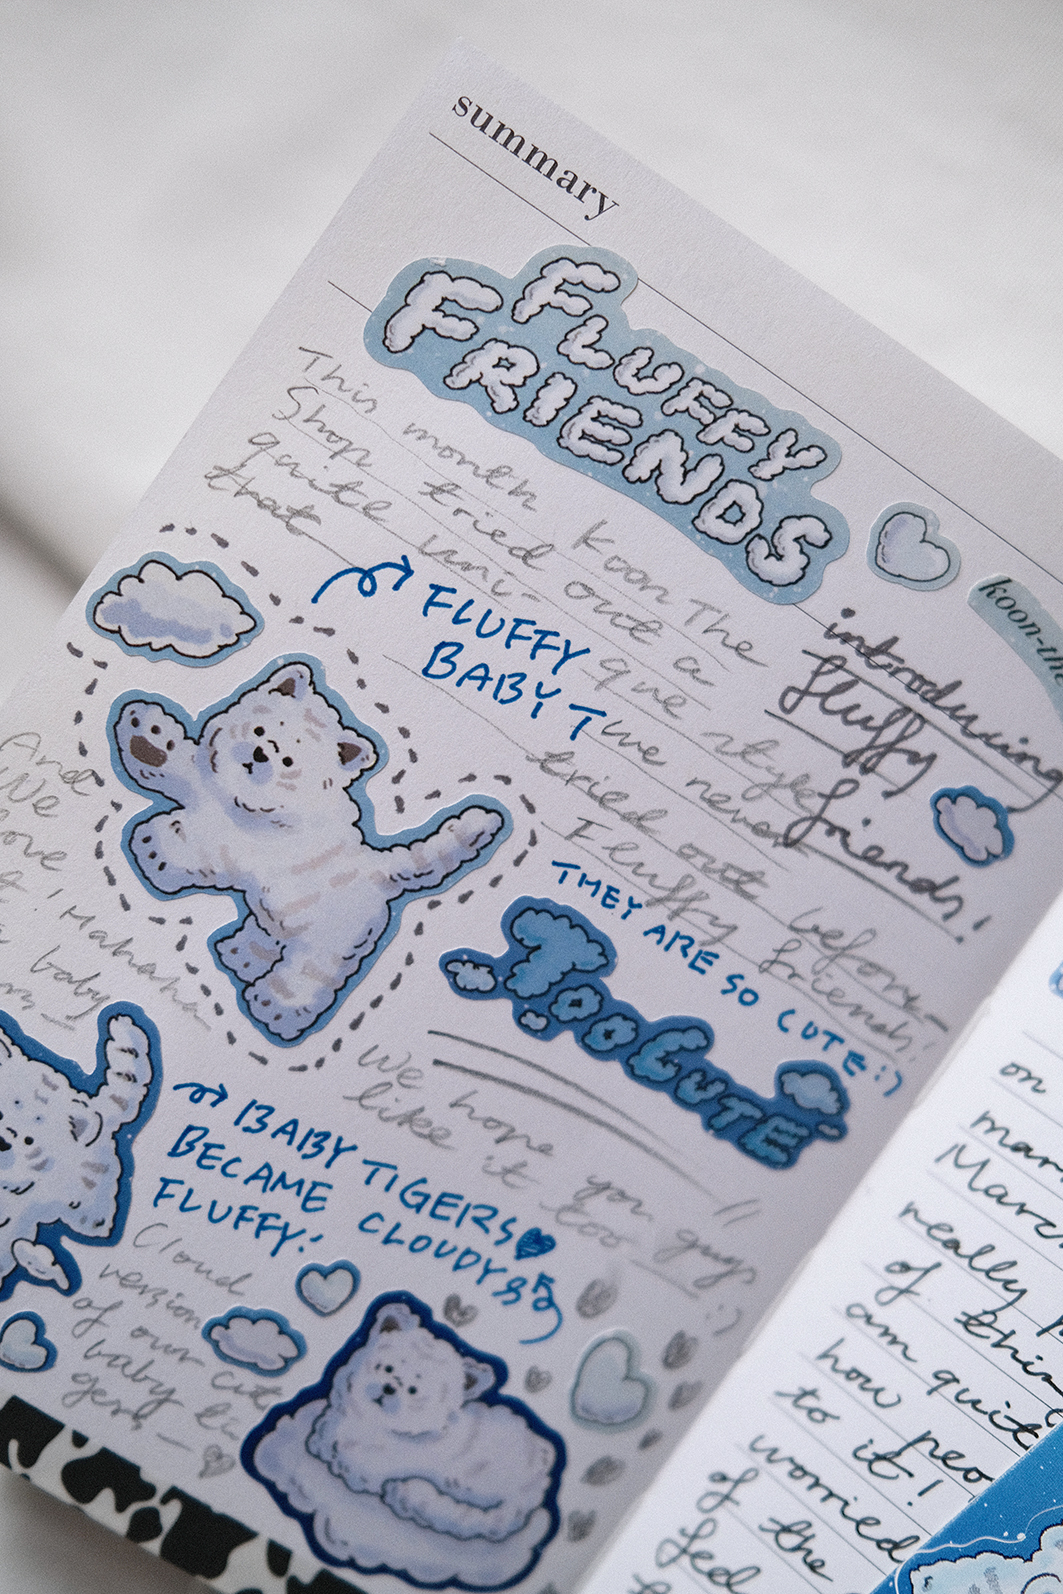 summary
FLUFFY
FRIENDS
This month Koon The
Shop tried out a
quite uni-que style
that we never
tried out before-
Fluffy friends!
FLUFFY
BABY T
koon-th
introducing
fluffy
friends!
THEY ARE SO CUTE:)
Too CUTE
We hope you guys
like it too :)
And
We
love
it! Hahaha
baby
BABY TIGERS
BECAME CLOUDY &
FLUFFY!
Cloud
version
of our cute
baby ti-
gers
on
mar
Marc
really
of thin
am quit
how peo
to it!
worried
of the
fed